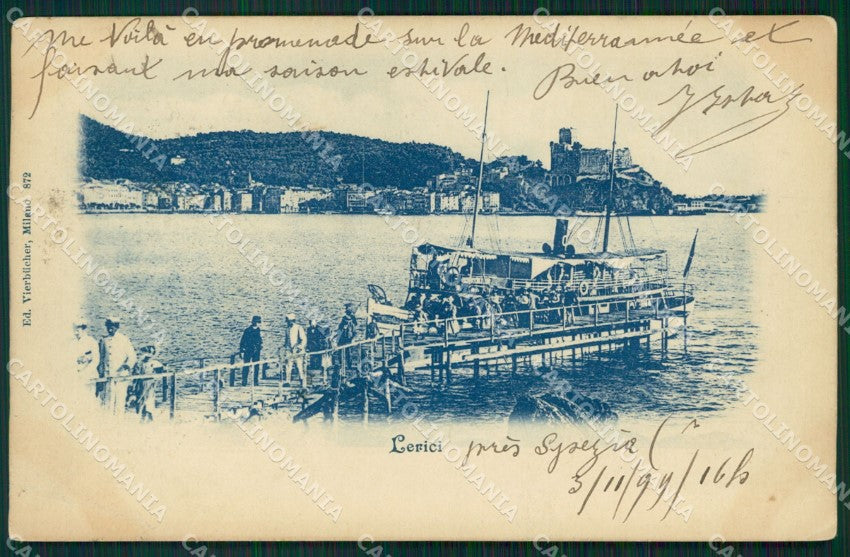 Me Voilà en promenade sur la Mediterrannée et
faisant ma saison estivale.
Bien à toi
Ed. Vierbücher, Milano 872
Lerici près Spezia
3/11/99/16h
CARTOLINOMANIA